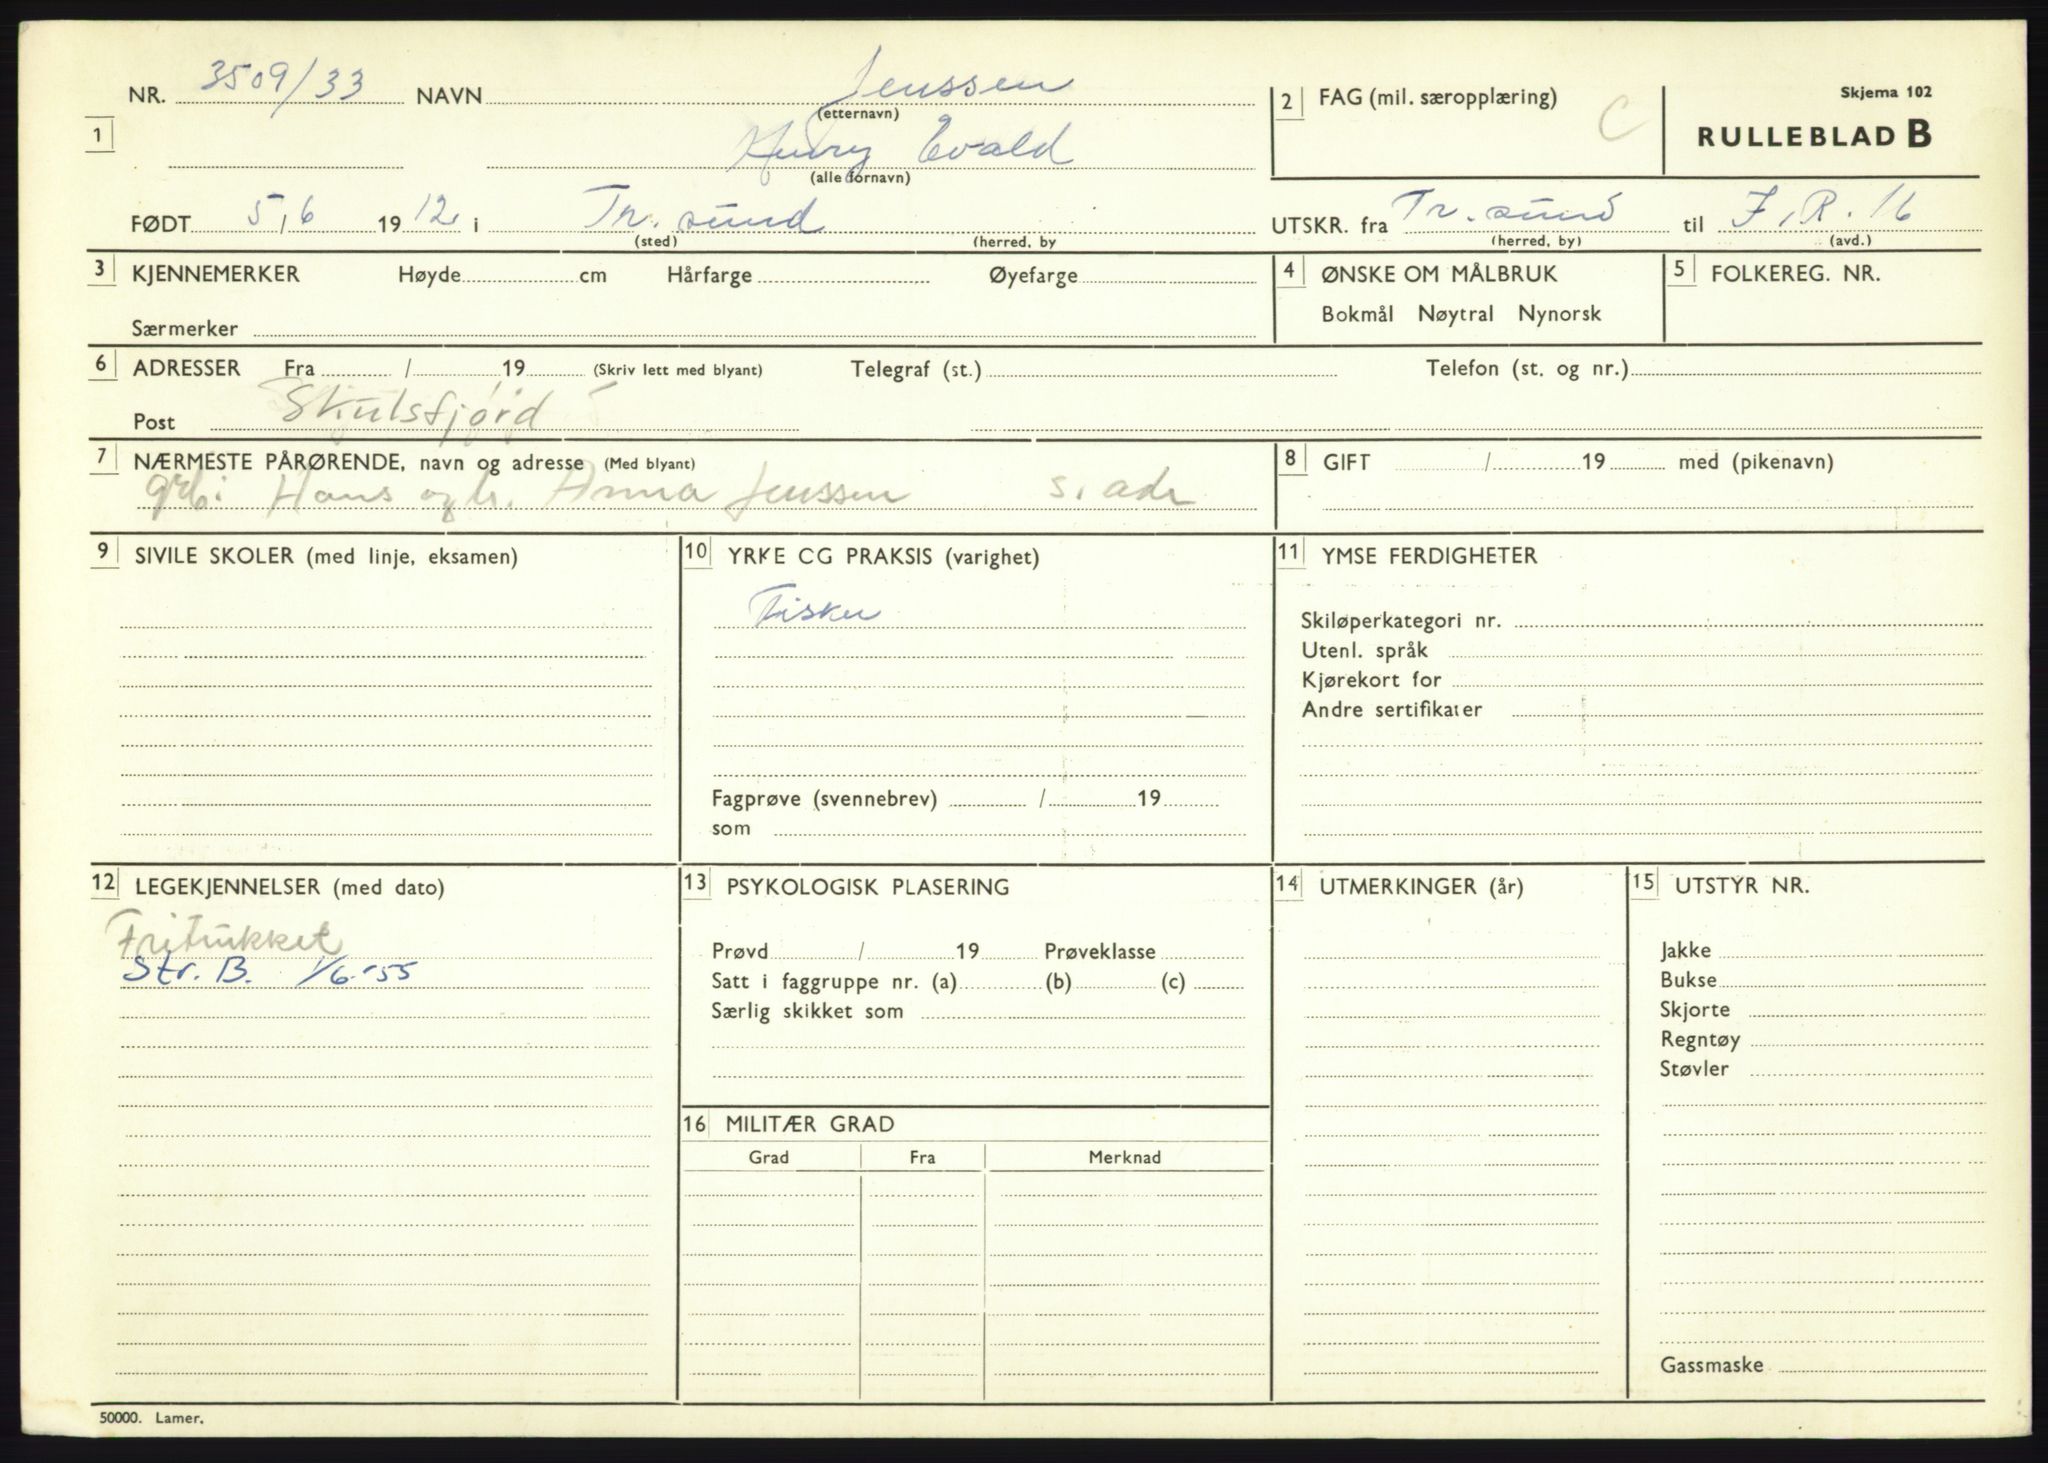 NR. 3509/33 NAVN Jenssen
(etternavn)
2 FAG (mil. særopplæring) C
Skjema 102
RULLEBLAD B
1
Henry Evald
(alle fornavn)
FØDT 5/6 1912 i Tr. sund
(sted) (herred, by
UTSKR. fra Tr. sund til I. R. 16
(herred, by) (avd.)
3 KJENNEMERKER Høyde cm Hårfarge Øyefarge
Særmerker
4 ØNSKE OM MÅLBRUK
Bokmål Nøytral Nynorsk
5 FOLKEREG. NR.
6 ADRESSER Fra / 19 (Skriv lett med blyant) Telegraf (st.) Telefon (st. og nr.)
Post Skulsfjord
7 NÆRMESTE PÅRØRENDE, navn og adresse (Med blyant)
Hans og h. Anna Jenssen s. adr
8 GIFT / 19 med (pikenavn)
9 SIVILE SKOLER (med linje, eksamen)
10 YRKE CG PRAKSIS (varighet)
Fisker
Fagprøve (svennebrev) / 19
som
11 YMSE FERDIGHETER
Skiløperkategori nr.
Utenl. språk
Kjørekort for
Andre sertifikater
12 LEGEKJENNELSER (med dato)
Fritrukket
Str. B. 1/6-55
13 PSYKOLOGISK PLASERING
Prøvd / 19 Prøveklasse
Satt i faggruppe nr. (a) (b) (c)
Særlig skikket som
14 UTMERKINGER (år)
15 UTSTYR NR.
Jakke
Bukse
Skjorte
Regntøy
Støvler
Gassmaske
16 MILITÆR GRAD
Grad Fra Merknad
50000. Lamer.